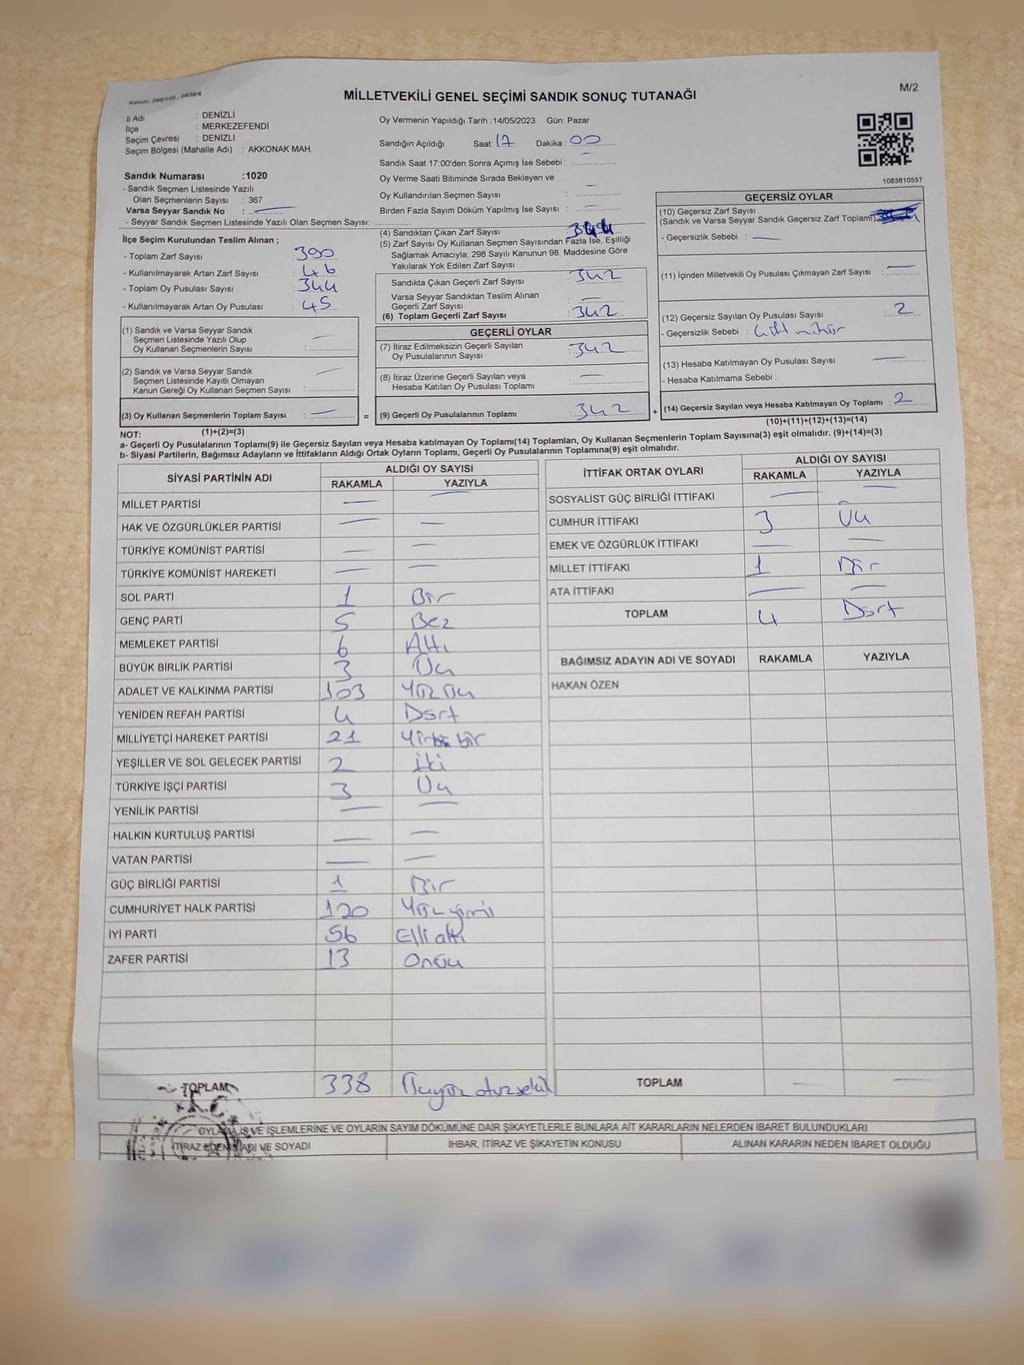 Kanun, 298/105, 2839/4
MİLLETVEKİLİ GENEL SEÇİMİ SANDIK SONUÇ TUTANAĞI
M/2
İl Adı : DENİZLİ
İlçe : MERKEZEFENDİ
Seçim Çevresi : DENİZLİ
Seçim Bölgesi (Mahalle Adı) : AKKONAK MAH.
Oy Vermenin Yapıldığı Tarih :14/05/2023 Gün: Pazar
Sandığın Açıldığı Saat: 17 Dakika : 00
Sandık Saat 17:00'den Sonra Açımış İse Sebebi : —
Oy Verme Saati Bitiminde Sırada Bekleyen ve
Oy Kullandırılan Seçmen Sayısı : —
Birden Fazla Sayım Döküm Yapılmış İse Sayısı : —
1083810557
Sandık Numarası :1020
- Sandık Seçmen Listesinde Yazılı
Olan Seçmenlerin Sayısı : 367
Varsa Seyyar Sandık No : —
- Seyyar Sandık Seçmen Listesinde Yazılı Olan Seçmen Sayısı:
İlçe Seçim Kurulundan Teslim Alınan ;
- Toplam Zarf Sayısı : 390
- Kullanılmayarak Artan Zarf Sayısı : 46
- Toplam Oy Pusulası Sayısı : 344
- Kullanılmayarak Artan Oy Pusulası : 45
(1) Sandık ve Varsa Seyyar Sandık
Seçmen Listesinde Yazılı Olup
Oy Kullanan Seçmenlerin Sayısı : —
(2) Sandık ve Varsa Seyyar Sandık
Seçmen Listesinde Kayıtlı Olmayan
Kanun Gereği Oy Kullanan Seçmen Sayısı : —
(3) Oy Kullanan Seçmenlerin Toplam Sayısı : —
(1)+(2)=(3)
(4) Sandıktan Çıkan Zarf Sayısı : 344
(5) Zarf Sayısı Oy Kullanan Seçmen Sayısından Fazla İse, Eşitliği
Sağlamak Amacıyla; 298 Sayılı Kanunun 98. Maddesine Göre
Yakılarak Yok Edilen Zarf Sayısı :
Sandıkta Çıkan Geçerli Zarf Sayısı : 342
Varsa Seyyar Sandıktan Teslim Alınan
Geçerli Zarf Sayısı : —
(6) Toplam Geçerli Zarf Sayısı : 342
GEÇERLİ OYLAR
(7) İtiraz Edilmeksizin Geçerli Sayılan
Oy Pusulalarının Sayısı : 342
(8) İtiraz Üzerine Geçerli Sayılan veya
Hesaba Katılan Oy Pusulası Toplamı : —
= (9) Geçerli Oy Pusulalarının Toplamı : 342 +
GEÇERSİZ OYLAR
(10) Geçersiz Zarf Sayısı
(Sandık ve Varsa Seyyar Sandık Geçersiz Zarf Toplamı)
- Geçersizlik Sebebi : —
(11) İçinden Milletvekili Oy Pusulası Çıkmayan Zarf Sayısı : —
(12) Geçersiz Sayılan Oy Pusulası Sayısı : 2
- Geçersizlik Sebebi : Çift mühür
(13) Hesaba Katılmayan Oy Pusulası Sayısı : —
- Hesaba Katılmama Sebebi :
(14) Geçersiz Sayılan veya Hesaba Katılmayan Oy Toplamı : 2
(10)+(11)+(12)+(13)=(14)
NOT:
a- Geçerli Oy Pusulalarının Toplamı(9) ile Geçersiz Sayılan veya Hesaba katılmayan Oy Toplamı(14) Toplamları, Oy Kullanan Seçmenlerin Toplam Sayısına(3) eşit olmalıdır. (9)+(14)=(3)
b- Siyasi Partilerin, Bağımsız Adayların ve İttifakların Aldığı Ortak Oyların Toplamı, Geçerli Oy Pusulalarının Toplamına(9) eşit olmalıdır.
SİYASİ PARTİNİN ADI ALDIĞI OY SAYISI
RAKAMLA YAZIYLA
MİLLET PARTİSİ — —
HAK VE ÖZGÜRLÜKLER PARTİSİ — —
TÜRKİYE KOMÜNİST PARTİSİ — —
TÜRKİYE KOMÜNİST HAREKETİ — —
SOL PARTİ 1 Bir
GENÇ PARTİ 5 Beş
MEMLEKET PARTİSİ 6 Altı
BÜYÜK BİRLİK PARTİSİ 3 Üç
ADALET VE KALKINMA PARTİSİ 103 Yüzüç
YENİDEN REFAH PARTİSİ 4 Dört
MİLLİYETÇİ HAREKET PARTİSİ 21 Yirmi bir
YEŞİLLER VE SOL GELECEK PARTİSİ 2 İki
TÜRKİYE İŞÇİ PARTİSİ 3 Üç
YENİLİK PARTİSİ — —
HALKIN KURTULUŞ PARTİSİ — —
VATAN PARTİSİ — —
GÜÇ BİRLİĞİ PARTİSİ 1 Bir
CUMHURİYET HALK PARTİSİ 120 Yüzyirmi
İYİ PARTİ 56 Elli altı
ZAFER PARTİSİ 13 Onüç
TOPLAM 338 Üçyüz otuzsekiz
İTTİFAK ORTAK OYLARI ALDIĞI OY SAYISI
RAKAMLA YAZIYLA
SOSYALİST GÜÇ BİRLİĞİ İTTİFAKI — —
CUMHUR İTTİFAKI 3 Üç
EMEK VE ÖZGÜRLÜK İTTİFAKI — —
MİLLET İTTİFAKI 1 Bir
ATA İTTİFAKI — —
TOPLAM 4 Dört
BAĞIMSIZ ADAYIN ADI VE SOYADI RAKAMLA YAZIYLA
HAKAN ÖZEN
TOPLAM — —
T.C.
OYLAMA İŞ VE İŞLEMLERİNE VE OYLARIN SAYIM DÖKÜMÜNE DAİR ŞİKAYETLERLE BUNLARA AİT KARARLARIN NELERDEN İBARET BULUNDUKLARI
İTİRAZ EDENİN ADI VE SOYADI İHBAR, İTİRAZ VE ŞİKAYETİN KONUSU ALINAN KARARIN NEDEN İBARET OLDUĞU